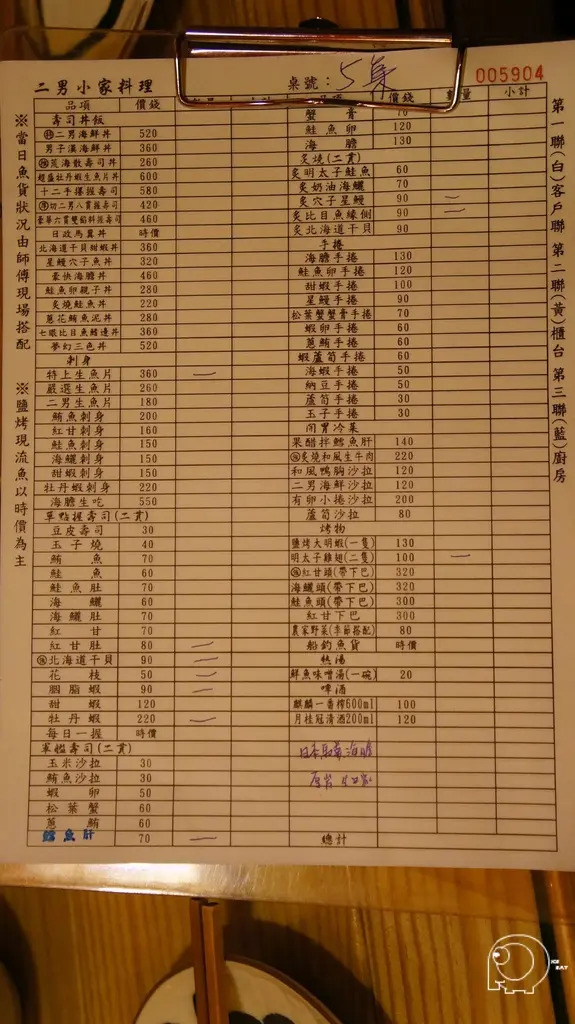 二男小家料理
桌號：5
005904
品項 價錢
壽司丼飯
二男海鮮丼 520
男子漢海鮮丼 360
荒海散壽司丼 260
超盛牡丹蝦生魚片丼 600
十二手摟握壽司 580
切二男八貫握壽司 420
豪華六貫雙餡料握壽司 460
日政馬糞丼 時價
北海道干貝甜蝦丼 360
星鰻穴子魚丼 320
豪快海膽丼 460
鮭魚卵親子丼 280
炙燒鮭魚丼 220
蔥花鮪魚泥丼 280
七眼比目魚鰭邊丼 360
夢幻三色丼 520
刺身
特上生魚片 360 一
嚴選生魚片 260
二男生魚片 180
鮪魚刺身 200
紅甘刺身 160
鮭魚刺身 150
海鱺刺身 150
甜蝦刺身 150
牡丹蝦刺身 220
海膽生吃 550
單點握壽司(二貫)
豆皮壽司 30
玉子燒 40
鮪魚 70
鮭魚 60
鮭魚肚 70
海鱺 60
海鱺肚 70
紅甘 70
紅甘肚 80 一
北海道干貝 90 一
花枝 50 一
胭脂蝦 90 一
甜蝦 120
牡丹蝦 220 一
每日一握 時價
軍艦壽司(二貫)
玉米沙拉 30
鮪魚沙拉 30
蝦卵 50
松葉蟹 60
蔥鮪 60
鱈魚肝 70 一
價錢 數量 小計
蟹膏 70
鮭魚卵 120
海膽 130
炙燒(二貫)
炙明太子鮭魚 60
炙奶油海鱺 70
炙穴子星鰻 90 二
炙比目魚緣側 90 二
炙北海道干貝 90
手捲
海膽手捲 130
鮭魚卵手捲 120
甜蝦手捲 100
星鰻手捲 90
松葉蟹蟹膏手捲 70
蝦卵手捲 60
蔥鮪手捲 60
蝦蘆筍手捲 60
海蝦手捲 50
納豆手捲 50
蘆筍手捲 30
玉子手捲 30
開胃冷菜
果醋拌鱈魚肝 140
炙燒和風生牛肉 220
和風鴨胸沙拉 120
二男海鮮沙拉 120
有卵小捲沙拉 200
蘆筍沙拉 80
烤物
鹽烤大明蝦(一隻) 130
明太子雞翅(二隻) 100 一
紅甘頭(帶下巴) 320
海鱺頭(帶下巴) 320
鮭魚頭(帶下巴) 300
紅甘下巴 300
農家野菜(季節搭配) 80
船釣魚貨 時價
熱湯
鮮魚味噌湯(一碗) 20
啤酒
麒麟一番榨600ml 100
月桂冠清酒200ml 120
日本
總計
※當日魚貨狀況由師傅現場搭配
※鹽烤現流魚以時價為主
第一聯(白)客戶聯 第二聯(黃)櫃台 第三聯(藍)廚房
ICE EAT